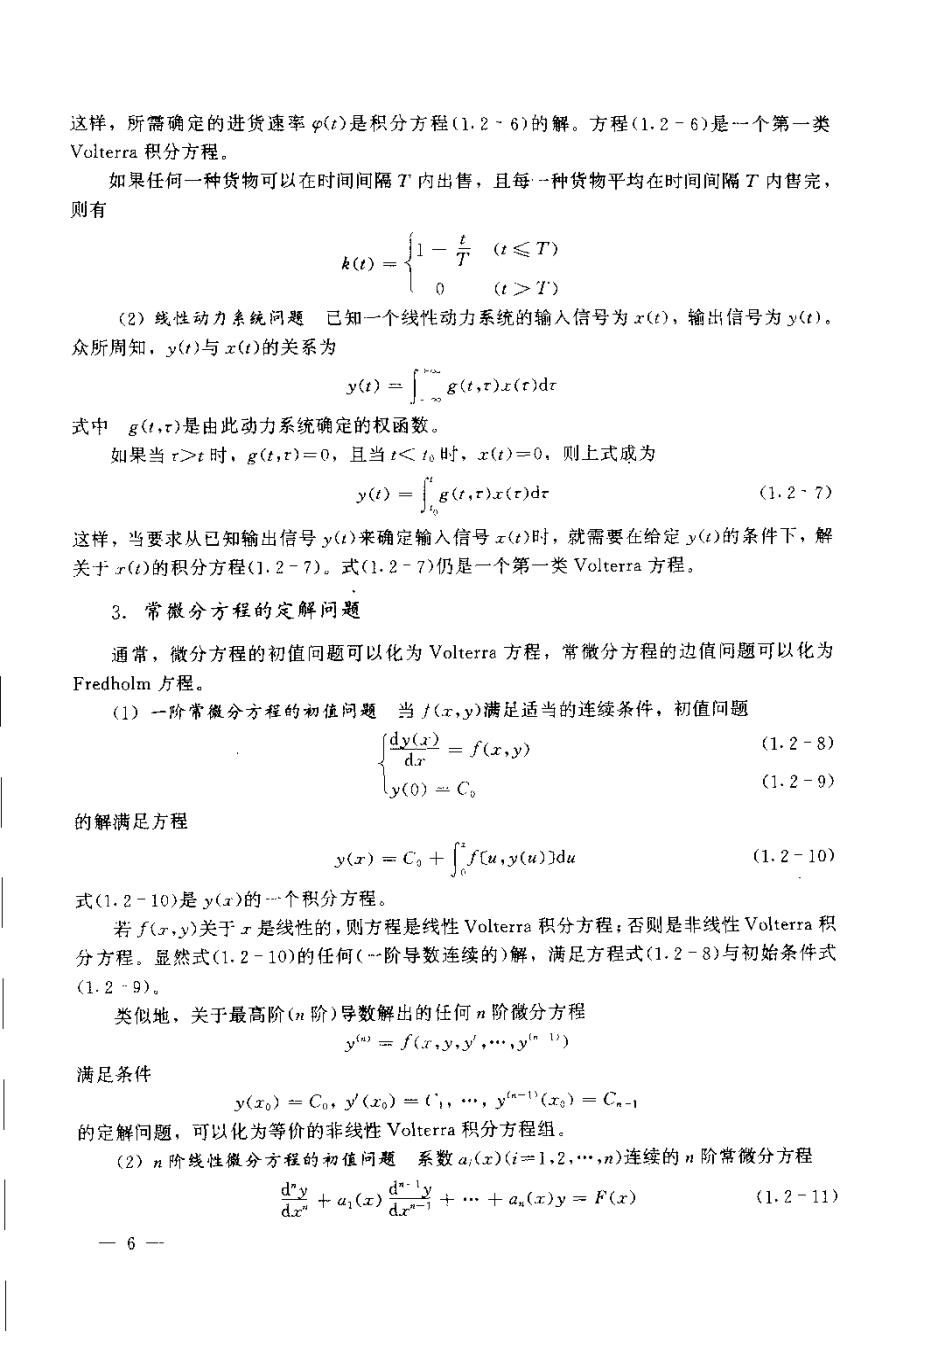 这样，所需确定的进货速率 φ(t)是积分方程(1.2-6)的解。方程(1.2-6)是一个第一类
Volterra 积分方程。
如果任何一种货物可以在时间间隔 T 内出售，且每一种货物平均在时间间隔 T 内售完，
则有
k(t) = { 1 - t/T (t ≤ T)
0 (t > T)
(2) 线性动力系统问题 已知一个线性动力系统的输入信号为 x(t)，输出信号为 y(t)。
众所周知，y(t)与 x(t)的关系为
y(t) = ∫_{-∞}^{+∞} g(t,τ)x(τ)dτ
式中 g(t,τ)是由此动力系统确定的权函数。
如果当 τ>t 时，g(t,τ)=0，且当 t< t₀ 时，x(t)=0，则上式成为
y(t) = ∫_{t₀}^{t} g(t,τ)x(τ)dτ (1.2-7)
这样，当要求从已知输出信号 y(t)来确定输入信号 x(t)时，就需要在给定 y(t)的条件下，解
关于 x(t)的积分方程(1.2-7)。式(1.2-7)仍是一个第一类 Volterra 方程。
3. 常微分方程的定解问题
通常，微分方程的初值问题可以化为 Volterra 方程，常微分方程的边值问题可以化为
Fredholm 方程。
(1) 一阶常微分方程的初值问题 当 f(x,y)满足适当的连续条件，初值问题
{ dy(x)/dx = f(x,y) (1.2-8)
y(0) = C₀ (1.2-9)
的解满足方程
y(x) = C₀ + ∫_{0}^{x} f[u,y(u)]du (1.2-10)
式(1.2-10)是 y(x)的一个积分方程。
若 f(x,y)关于 x 是线性的，则方程是线性 Volterra 积分方程；否则是非线性 Volterra 积
分方程。显然式(1.2-10)的任何(一阶导数连续的)解，满足方程式(1.2-8)与初始条件式
(1.2-9)。
类似地，关于最高阶(n 阶)导数解出的任何 n 阶微分方程
y⁽ⁿ⁾ = f(x,y,y′,⋯,y⁽ⁿ⁻¹⁾)
满足条件
y(x₀) = C₀, y′(x₀) = C₁, ⋯, y⁽ⁿ⁻¹⁾(x₀) = Cₙ₋₁
的定解问题，可以化为等价的非线性 Volterra 积分方程组。
(2) n 阶线性微分方程的初值问题 系数 aᵢ(x)(i=1,2,⋯,n)连续的 n 阶常微分方程
dⁿy/dxⁿ + a₁(x) dⁿ⁻¹y/dxⁿ⁻¹ + ⋯ + aₙ(x)y = F(x) (1.2-11)
— 6 —